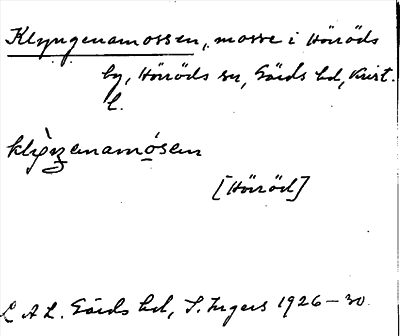 Klyngenamossen, mosse i Hörröds
by, Hörröds sn, Gärds hd, Krist.
l.
klìŋenamósen
[Hörröd]
L A L. Gärds hd, S. Ingers 1926-30